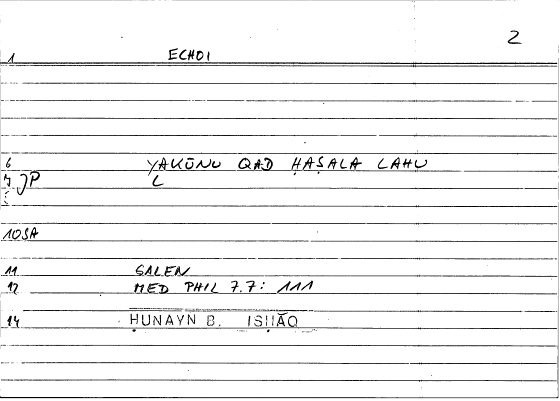 2
1 ECHOI
6 YAKŪNU QAD ḤAṢALA LAHU
7 JP L
10 SA
11 GALEN
12 MED PHIL 7.7: 111
14 ḤUNAYN B. ISḤĀQ